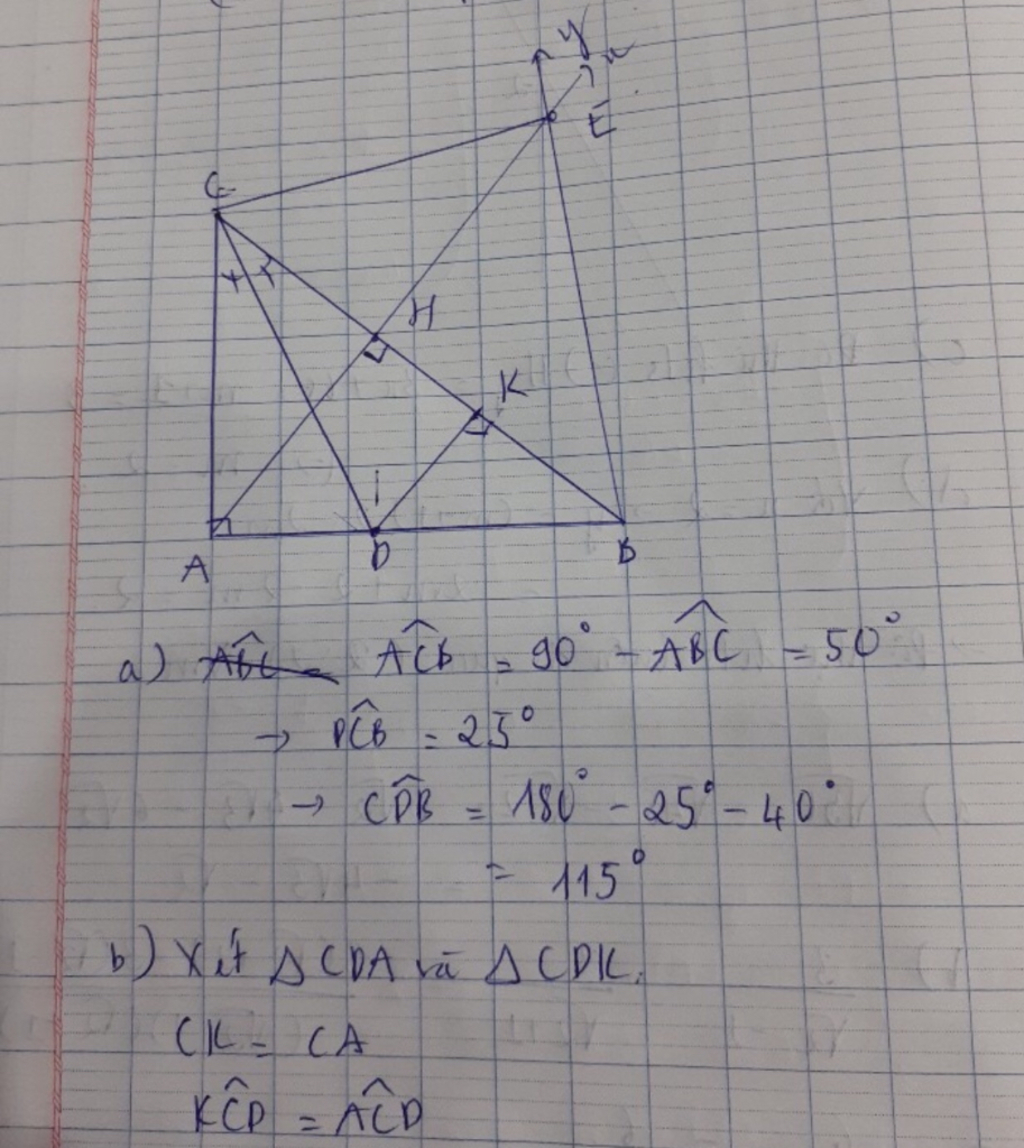 y
x
E
C
H
K
A
D
B
a) ABC ACB = 90° - ABC = 50°
→ DCB = 25°
→ CDB = 180° - 25° - 40°
= 115°
b) Xét Δ CDA và Δ CDK.
CK = CA
KCD = ACD